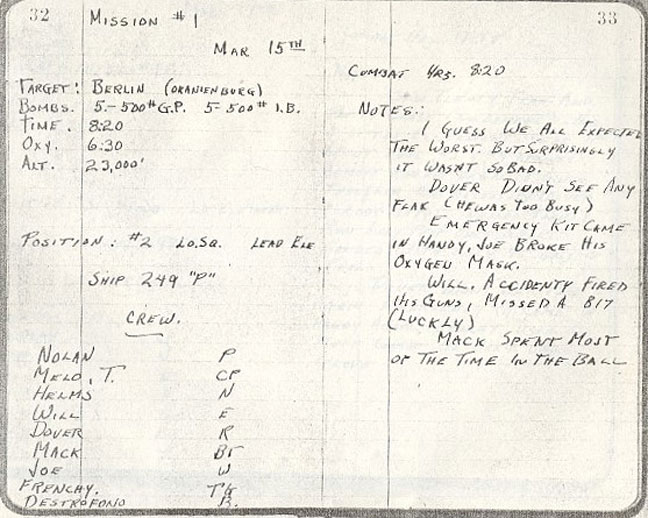 32
MISSION #1
MAR 15TH
TARGET: BERLIN (ORANIENBURG)
BOMBS. 5-500# G.P. 5-500# I.B.
TIME. 8:20
OXY. 6:30
ALT. 23,000'
POSITION: #2 LO.SQ. LEAD ELE
SHIP 249 "P"
CREW.
NOLAN P
MELO, T. CP
HELMS N
WILL E
DOVER R
MACK BT
JOE W
FRENCHY. TG
DESTROFONO B.
33
COMBAT HRS. 8:20
NOTES:
I GUESS WE ALL EXPECTED
THE WORST. BUT SURPRISINGLY
IT WASNT SO BAD.
DOVER DIDN'T SEE ANY
FLAK (HE WAS TOO BUSY)
EMERGENCY KIT CAME
IN HANDY, JOE BROKE HIS
OXYGEN MASK.
WILL. ACCIDENTY FIRED
HIS GUNS, MISSED A B17
(LUCKLY)
MACK SPENT MOST
OF THE TIME IN THE BALL